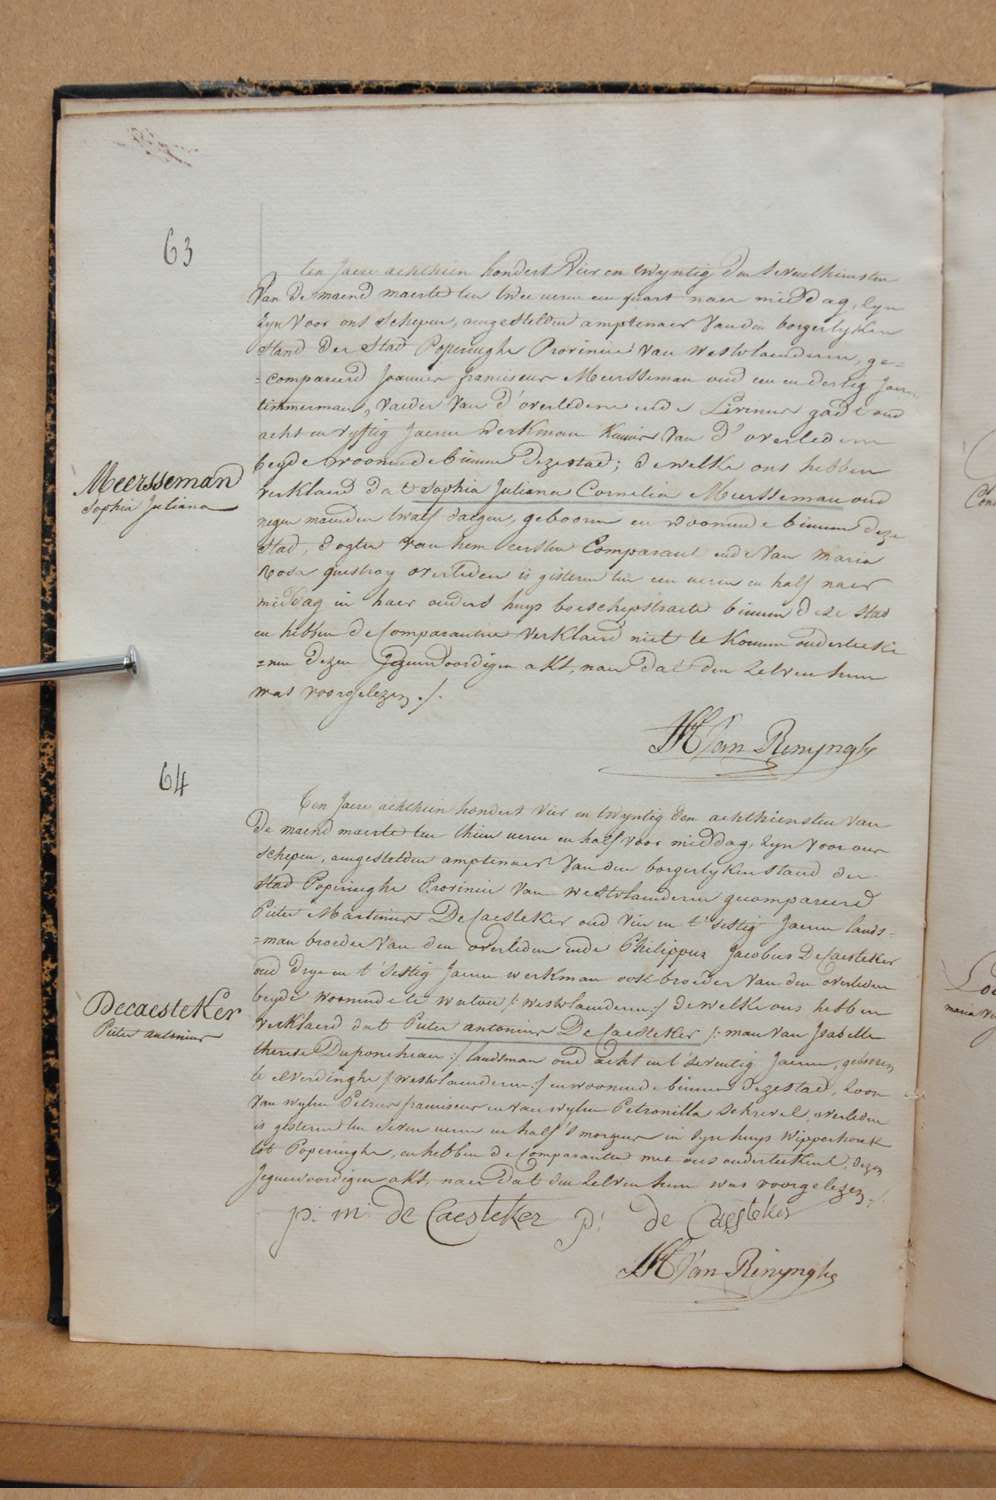 63
ten Jaere achthien hondert Vier en twyntig den Seventhiensten
Van de maend maerte ten twee uren een quart naer middag, Zyn
Zyn Voor ons Schepen, aengestelden amptenaer Van den borgerlyken
Stand der Stad Poperinghe Provincie Van Westvlaenderen, ge-
=compareerd Joannes franciscus Meersseman oud een en dertig Jaer
timmerman, Vaeder Van d'overledene ende Livinus oud
acht en vyftig Jaeren werkman Van d'overledene
beyde woonende binnen dezestad; dewelke ons hebben
verklaerd dat Sophia Juliana Cornelia Meersseman oud
negen maenden twalf daegen, gebooren en woonende binnen deze
Stad, dogter van hem eersten Comparant ende Van Maria
Rosa questroy overleden is gisteren ten een uren en half naer
middag in haer ouders huys boeschepstraete binnen deze Stad
en hebben de Comparanten verklaerd niet te konnen onderteeke
=nen dezen Jegenwoordigen akt, naer dat den Zelven hun
was voorgelezen ./.
Meersseman
Sophia Juliana
Van Renynghe
64
Ten Jaere achthien hondert vier en twyntig den achthiensten van
de maend maerte ten thien uren en half voor middag, Zyn voor ons
Schepen, aengestelden amptenaer Van den borgerlyken Stand der
Stad Poperinghe Provincie Van westvlaenderen gecompareerd
Pieter Martinus DeCaesteker oud vier en t'sestig Jaeren lands=
=man broeder Van den overleden ende Philippus Jacobus DeCaesteker
oud drye en t'sestig Jaeren werkman ook broeder van den overleden
beyde woonende te watou /: westvlaenderen :/ dewelke ons hebben
verklaerd dat Pieter antonius DeCaesteker /: man van Isabelle
therese :/ landsman oud acht en t'seventig Jaeren, gebooren
te elverdinghe /: westvlaenderen :/ en woonende binnen dezestad, Zoon
van wylen Petrus franciscus en van wylen Petronilla Schrevel, overleden
is gisteren ten Seven uren en half 's morgens in Zyn huys Wipperhoek
tot Poperinghe, en hebben de Comparanten met ons onderteekent dezen
Jegenwoordigen akt, naer dat den Zelven hun was voorgelezen ./.
Decaesteker
Pieter antonius
p: m: de Caesteker p: de Caesteker
Van Renynghe